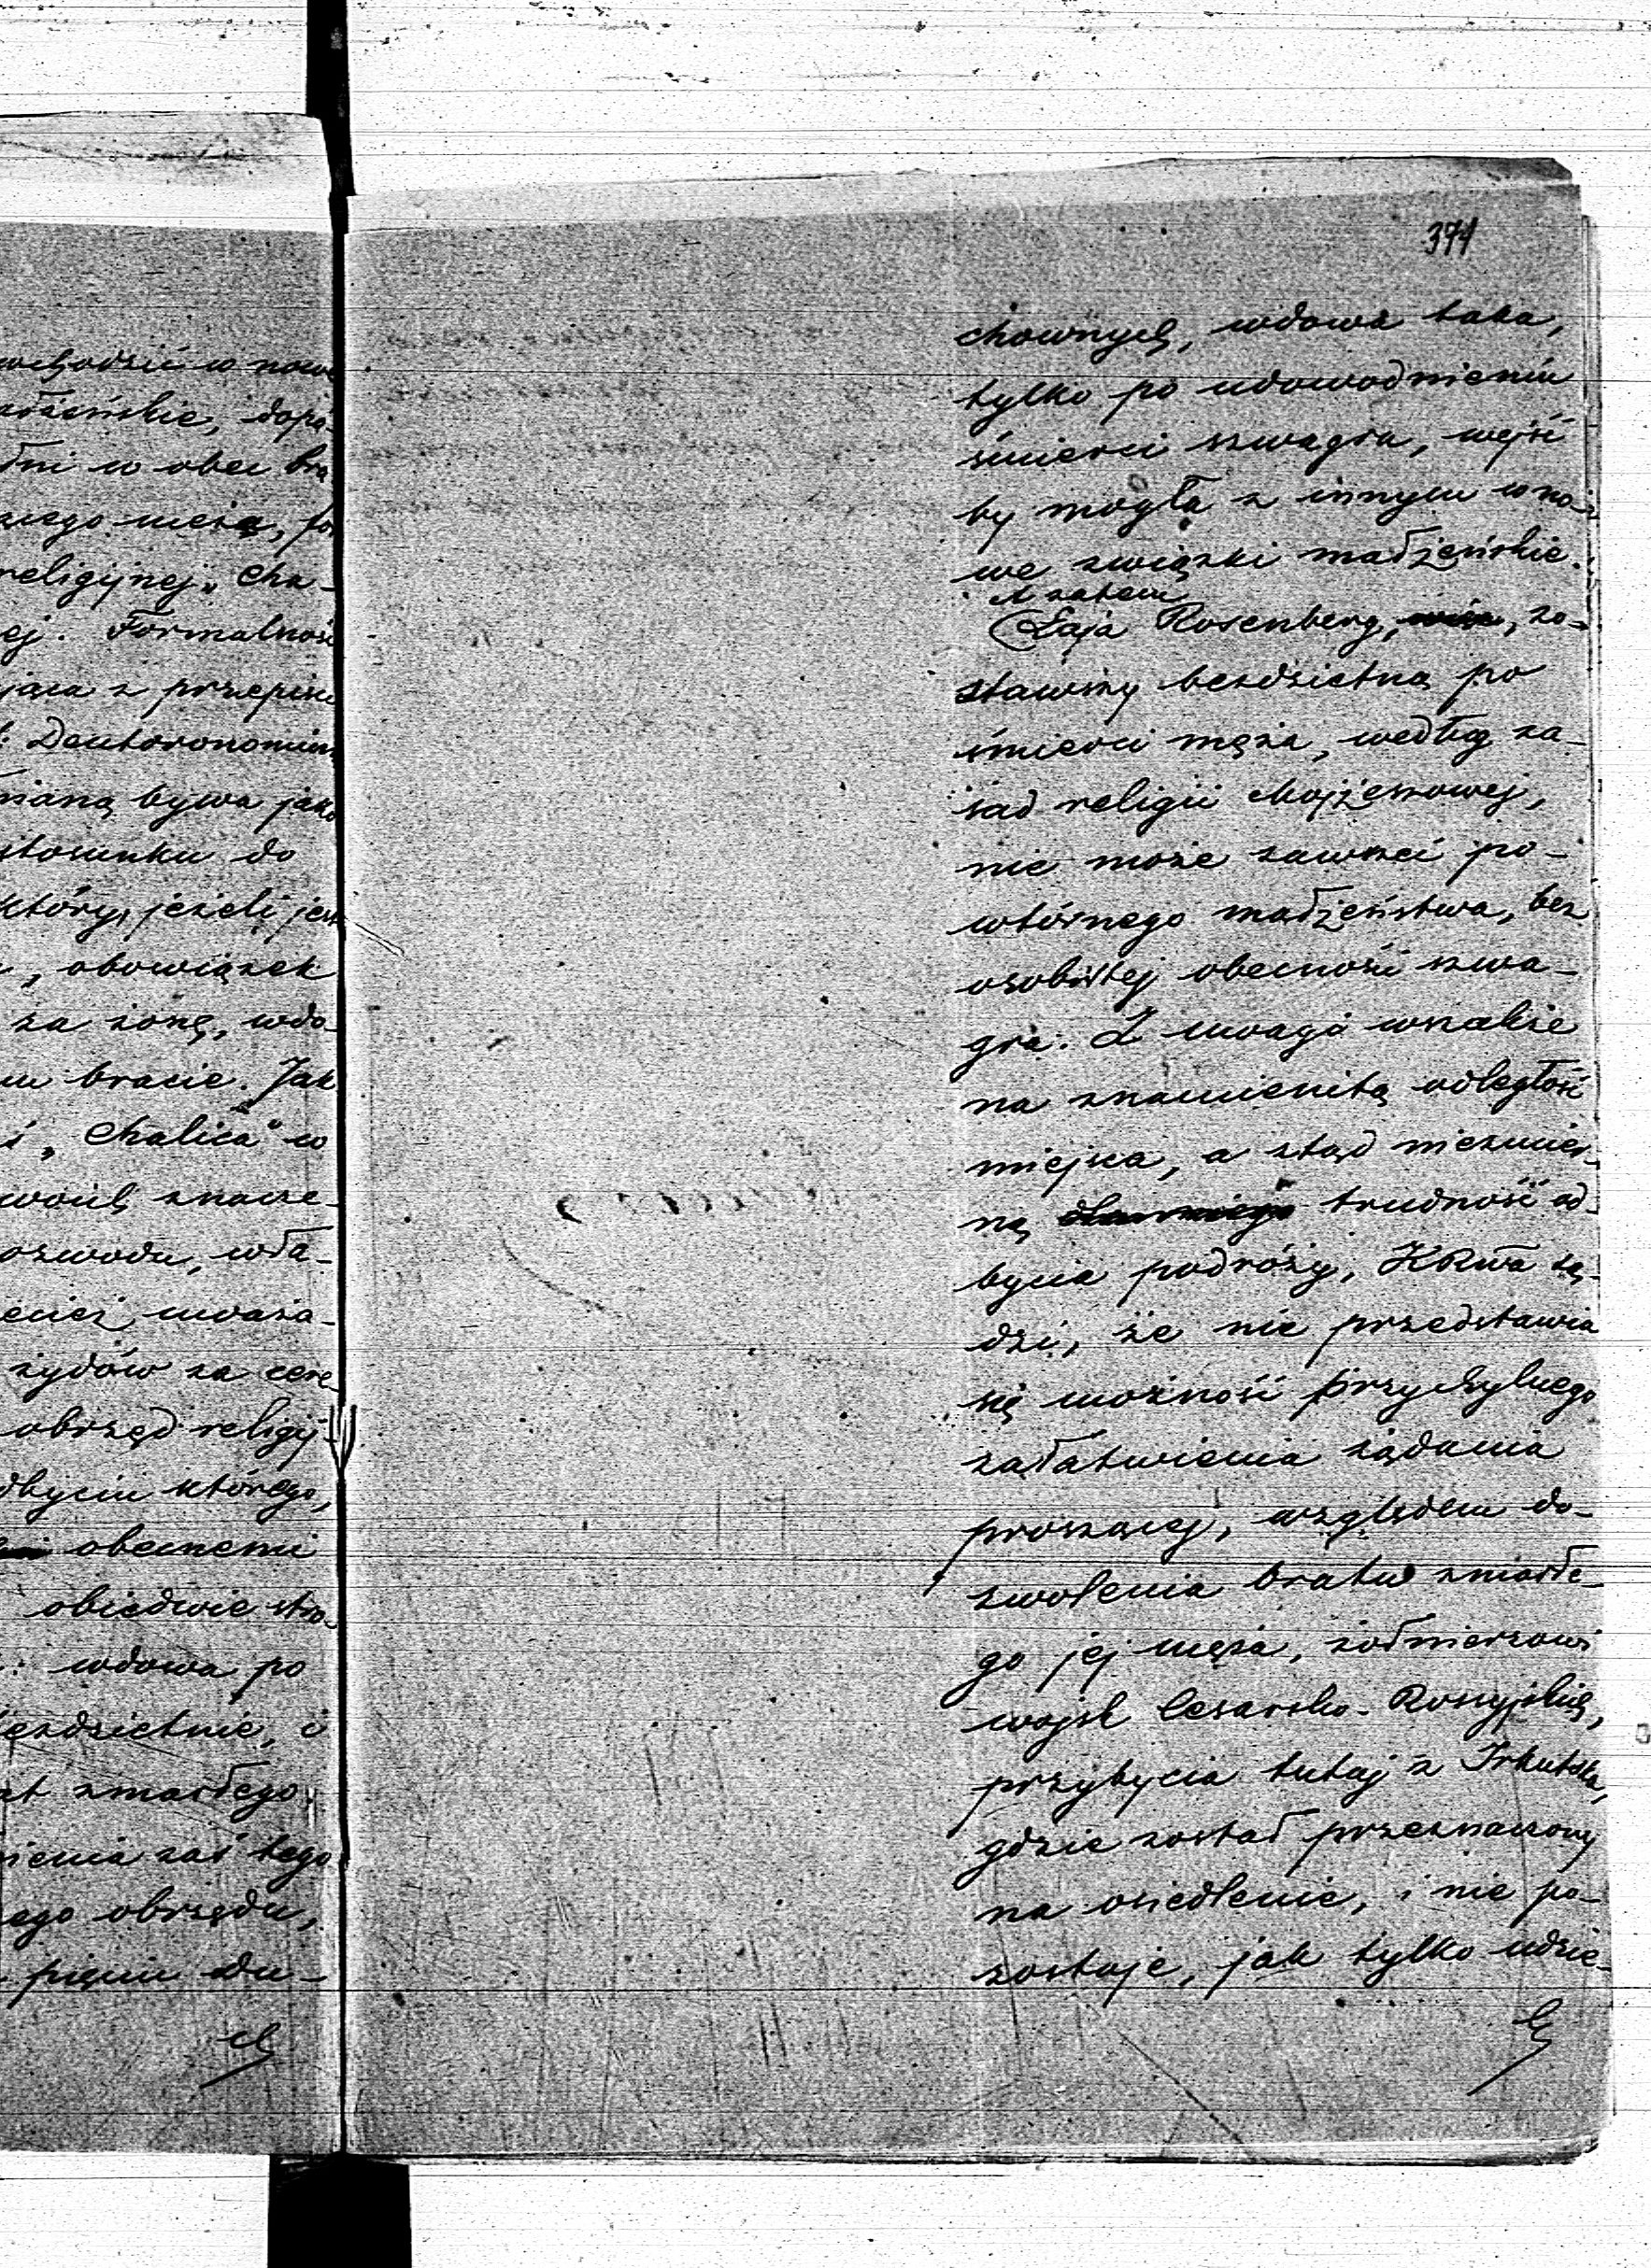 wchodzić w nowe
małżeńskie, dopó-
w obec bra
męża, for
religijnej „Cha-
ej. Formalność
jąca z przepisu
Deutoronomium
bywa jako
stosunku do
który, jeżeli jest
, obowiązek
za żonę, wdo-
bracie. Jak
„Chalica" w
znacze-
ozwodu, wła-
uważa-
żydów za cere-
obrzęd religij-
dbyciu którego,
obecnemi
obiedwie stro-
: wdowa po
ezdzietnie, i
at zmarłego.
nienia zaś tego
ego obrzędu,
pięciu du-
371
chownych, wdowa taka,
tylko po udowodnieniu
śmierci szwagra, wejść
by mogła z innym w no-
we związki małżeńskie.
A zatem
Łaja Rosenberg, więc, zo-
stawszy bezdzietną po
śmierci męża, według za-
sad religii Mojżeszowej,
nie może zawrzeć po-
wtórnego małżeństwa, bez
osobistej obecności szwa-
gra. Z uwagi wszakże
na znamienitą odległość
miejsca, a stąd niezmier-
ną trudność od-
bycia podróży, KRwa są-
dzi, że nie przedstawia
się możność przychylnego
załatwienia żądania
proszącej, względem do-
zwolenia bratu zmarłe-
go jej męża, żołnierzowi
wojsk Cesarsko-Rossyjskich,
przybycia tutaj z Irkutska,
gdzie został przeznaczony
na osiedlenie, i nie po-
zostaje, jak tylko udzie-